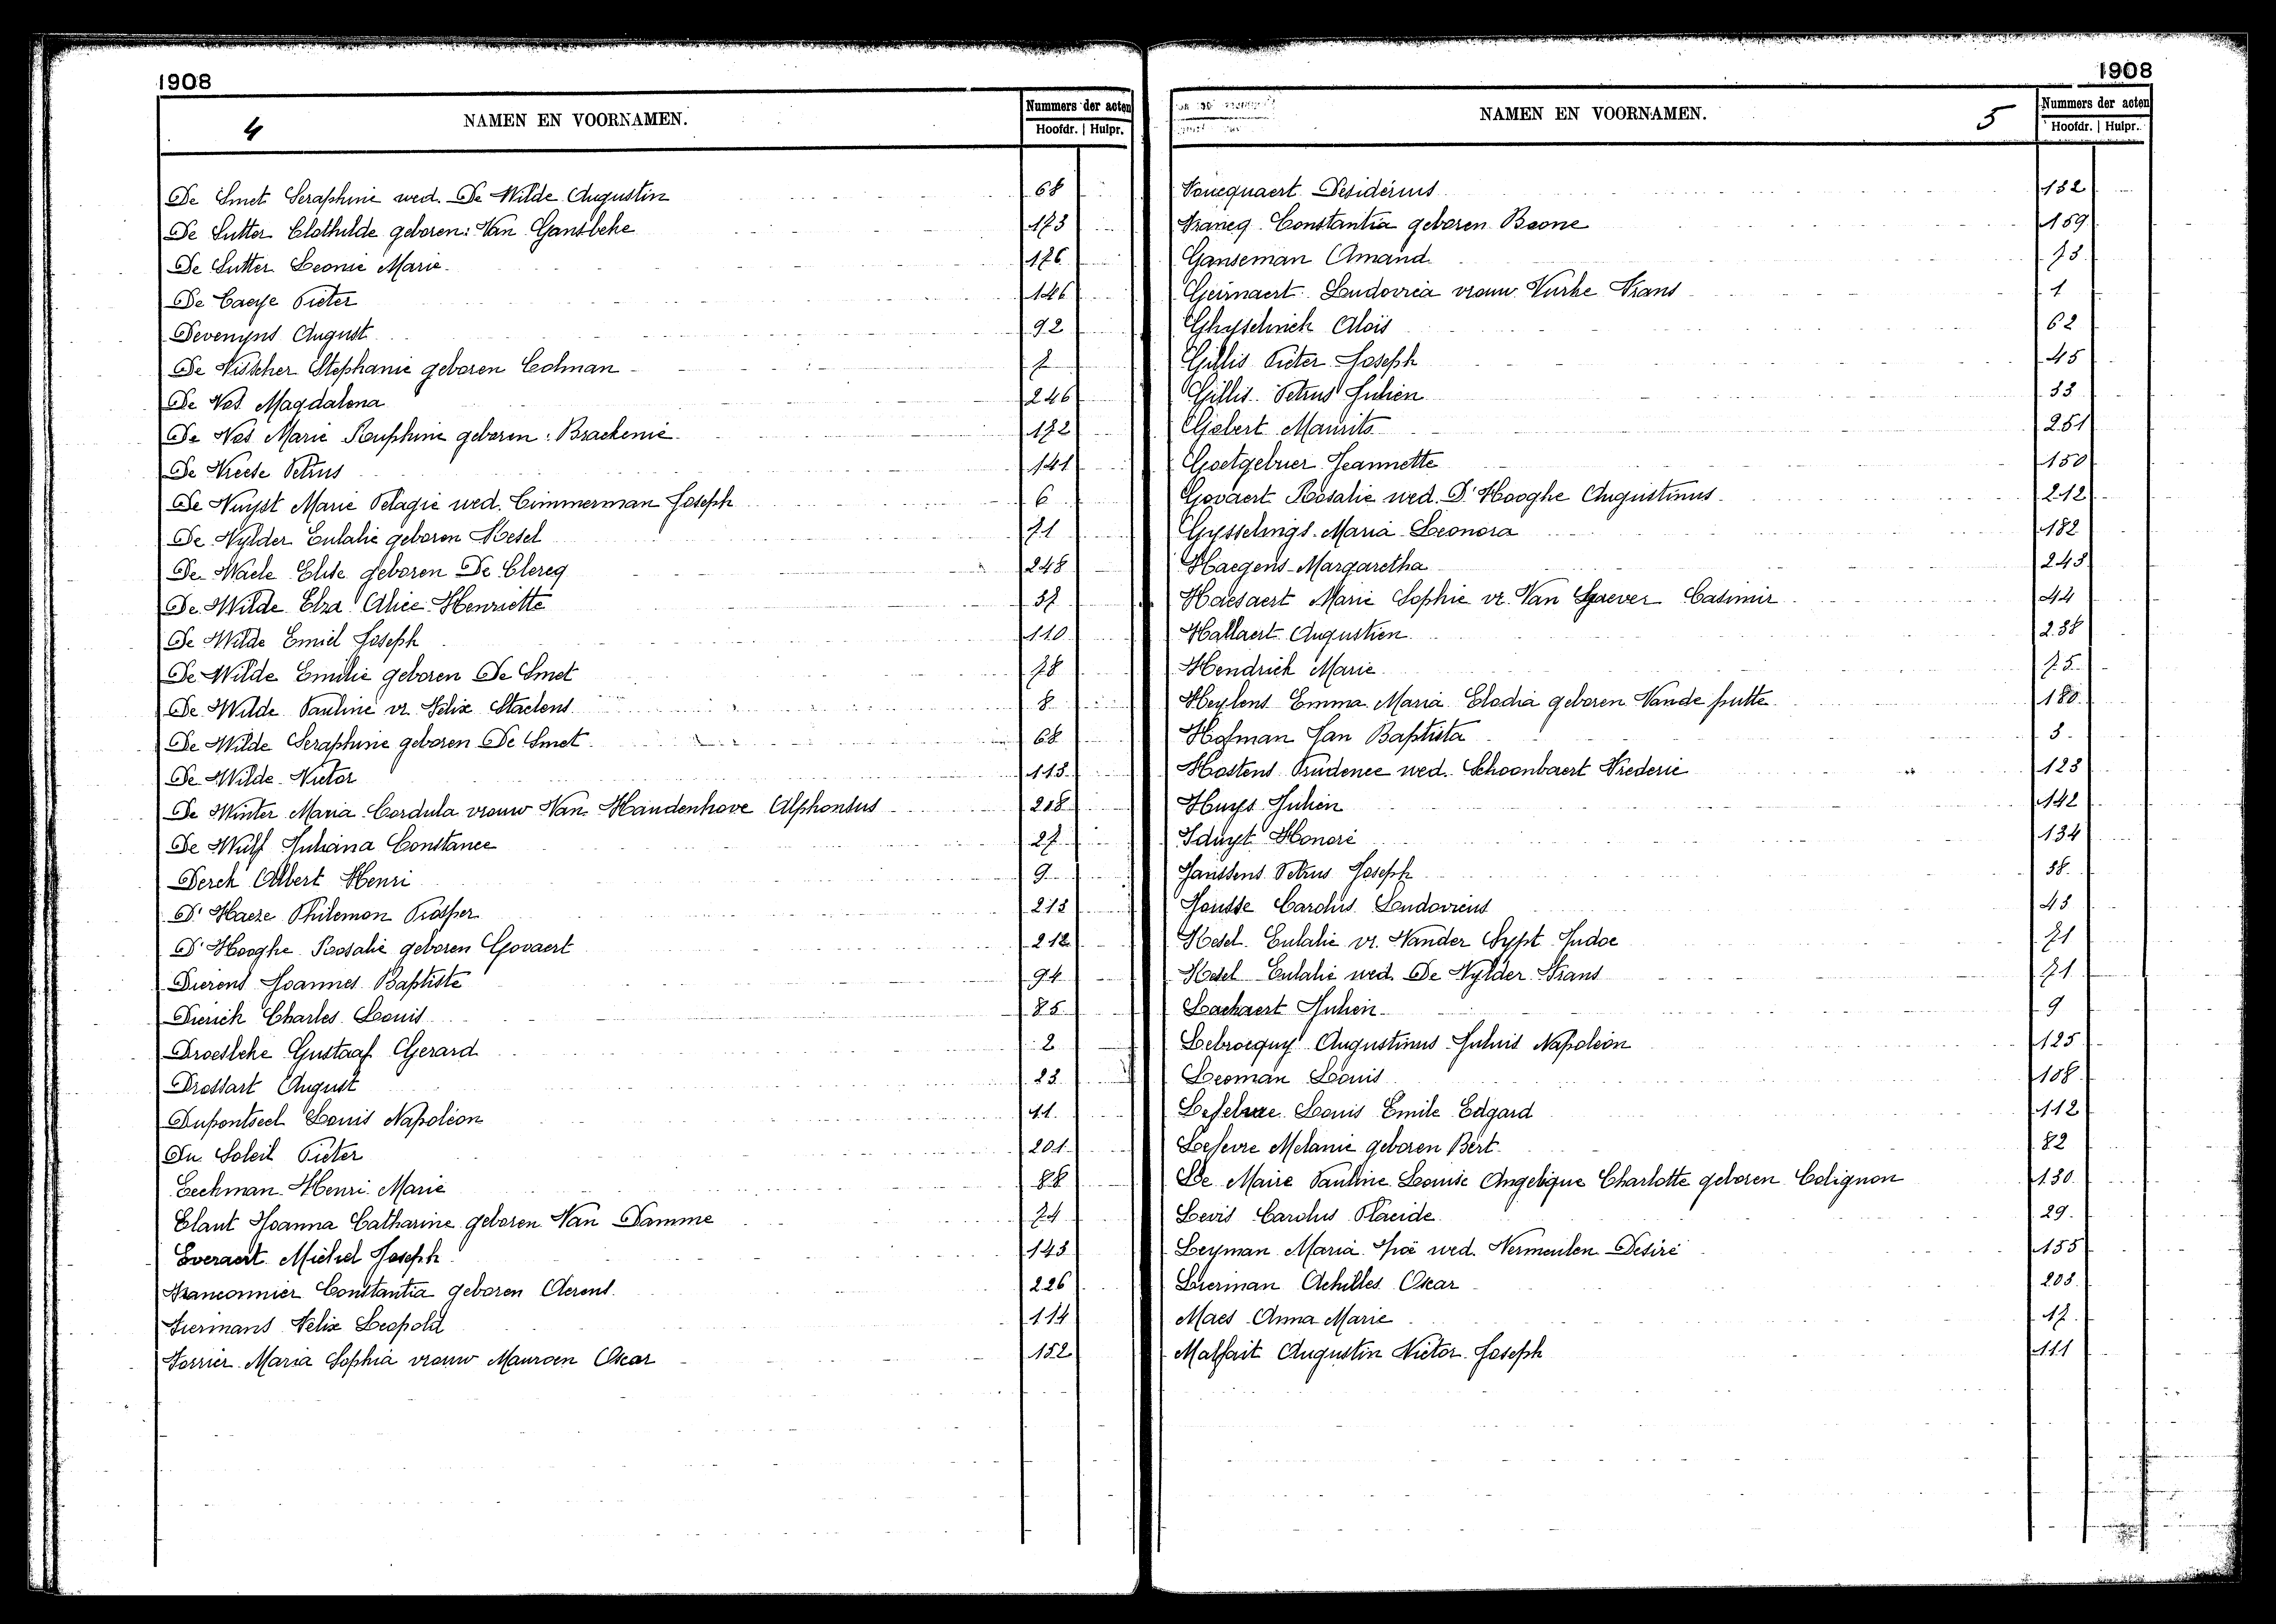 1908
4
NAMEN EN VOORNAMEN.
Nummers der acten
Hoofdr. | Hulpr.
De Smet Seraphine wed. De Wilde Augustin 68
De Sutter Clothilde geboren: Van Gansbeke 173
De Sutter Leonie Marie 176
De Caeye Pieter 146
Devenyns August 92
De Visscher Stephanie geboren Colman 7
De Vos Magdalena 246
De Vos Marie Rouphine geboren: Brackenié 172
De Vreese Petrus 141
De Vuyst Marie Pelagie wed. Cimmerman Joseph 6
De Vylder Eulalie geboren Hesel 71
De Waele Elise geboren De Clercq 248
De Wilde Elza Alice Henriette 37
De Wilde Emiel Joseph 110
De Wilde Emilie geboren De Smet 78
De Wilde Pauline vr. Felix Staelens 8
De Wilde Seraphine geboren De Smet 68
De Wilde Victor 113
De Winter Maria Cordula vrouw Van Handenhove Alphonsus 218
De Wulf Juliana Constance 27
Derck Albert Henri 9
D'Haeze Philemon Prosper 213
D'Hooghe Rosalie geboren Govaert 212
Dierens Joannes Baptiste 94
Dierick Charles Louis 85
Droesbeke Gustaaf Gerard 2
Drossart August 23
Dupontseel Louis Napoléon 41
Du Soleil Pieter 201
Eeckman Henri Marie 88
Elaut Joanna Catharine geboren Van Damme 74
Everaert Michel Joseph 143
Franconnier Constantia geboren Aerens 226
Fiermans Felix Leopold 114
Forrier Maria Sophia vrouw Mauroen Oscar 152
1908
NAMEN EN VOORNAMEN.
5
Nummers der acten
Hoofdr. | Hulpr.
Foucquaert Desiderius 132
Francq Constantia geboren Boone 159
Ganseman Amand 73
Geirnaert Ludovica vrouw Vurke Frans 1
Ghysebrick Aloïs 62
Gillis Pieter Joseph 45
Gillis Petrus Julien 33
Gobert Maurits 251
Goetgebuer Jeannette 150
Govaert Rosalie wed. D'Hooghe Augustinus 212
Gysselings Maria Leonora 182
Haegens Margaretha 243
Haesaert Marie Sophie vr. Van Graever Casimir 44
Hallaert Augustien 238
Hendrick Marie 75
Heylens Emma Maria Elodia geboren Vande putte 180
Hofman Jan Baptista 3
Hostens Prudence wed. Schoonbaert Frederic 123
Huys Julien 142
Iduyt Honoré 134
Janssens Petrus Joseph 38
Jousse Carolus Ludovicus 43
Hesel Eulalie vr. Vander Sypt Judoc 71
Hesel Eulalie wed. De Vylder Frans 71
Lackaert Julien 9
Lebrocquy Augustinus Juluis Napoléon 125
Leeman Louis 108
Lefebvre Louis Emile Edgard 112
Lefevre Melanie geboren Bert 82
De Maire Pauline Louise Angelique Charlotte geboren Colignon 130
Levis Carolus Placide 29
Leyman Maria Zoë wed. Vermeulen Desiré 155
Lierman Achilles Oscar 203
Maes Anna Marie 17
Malfait Augustin Victor Joseph 111